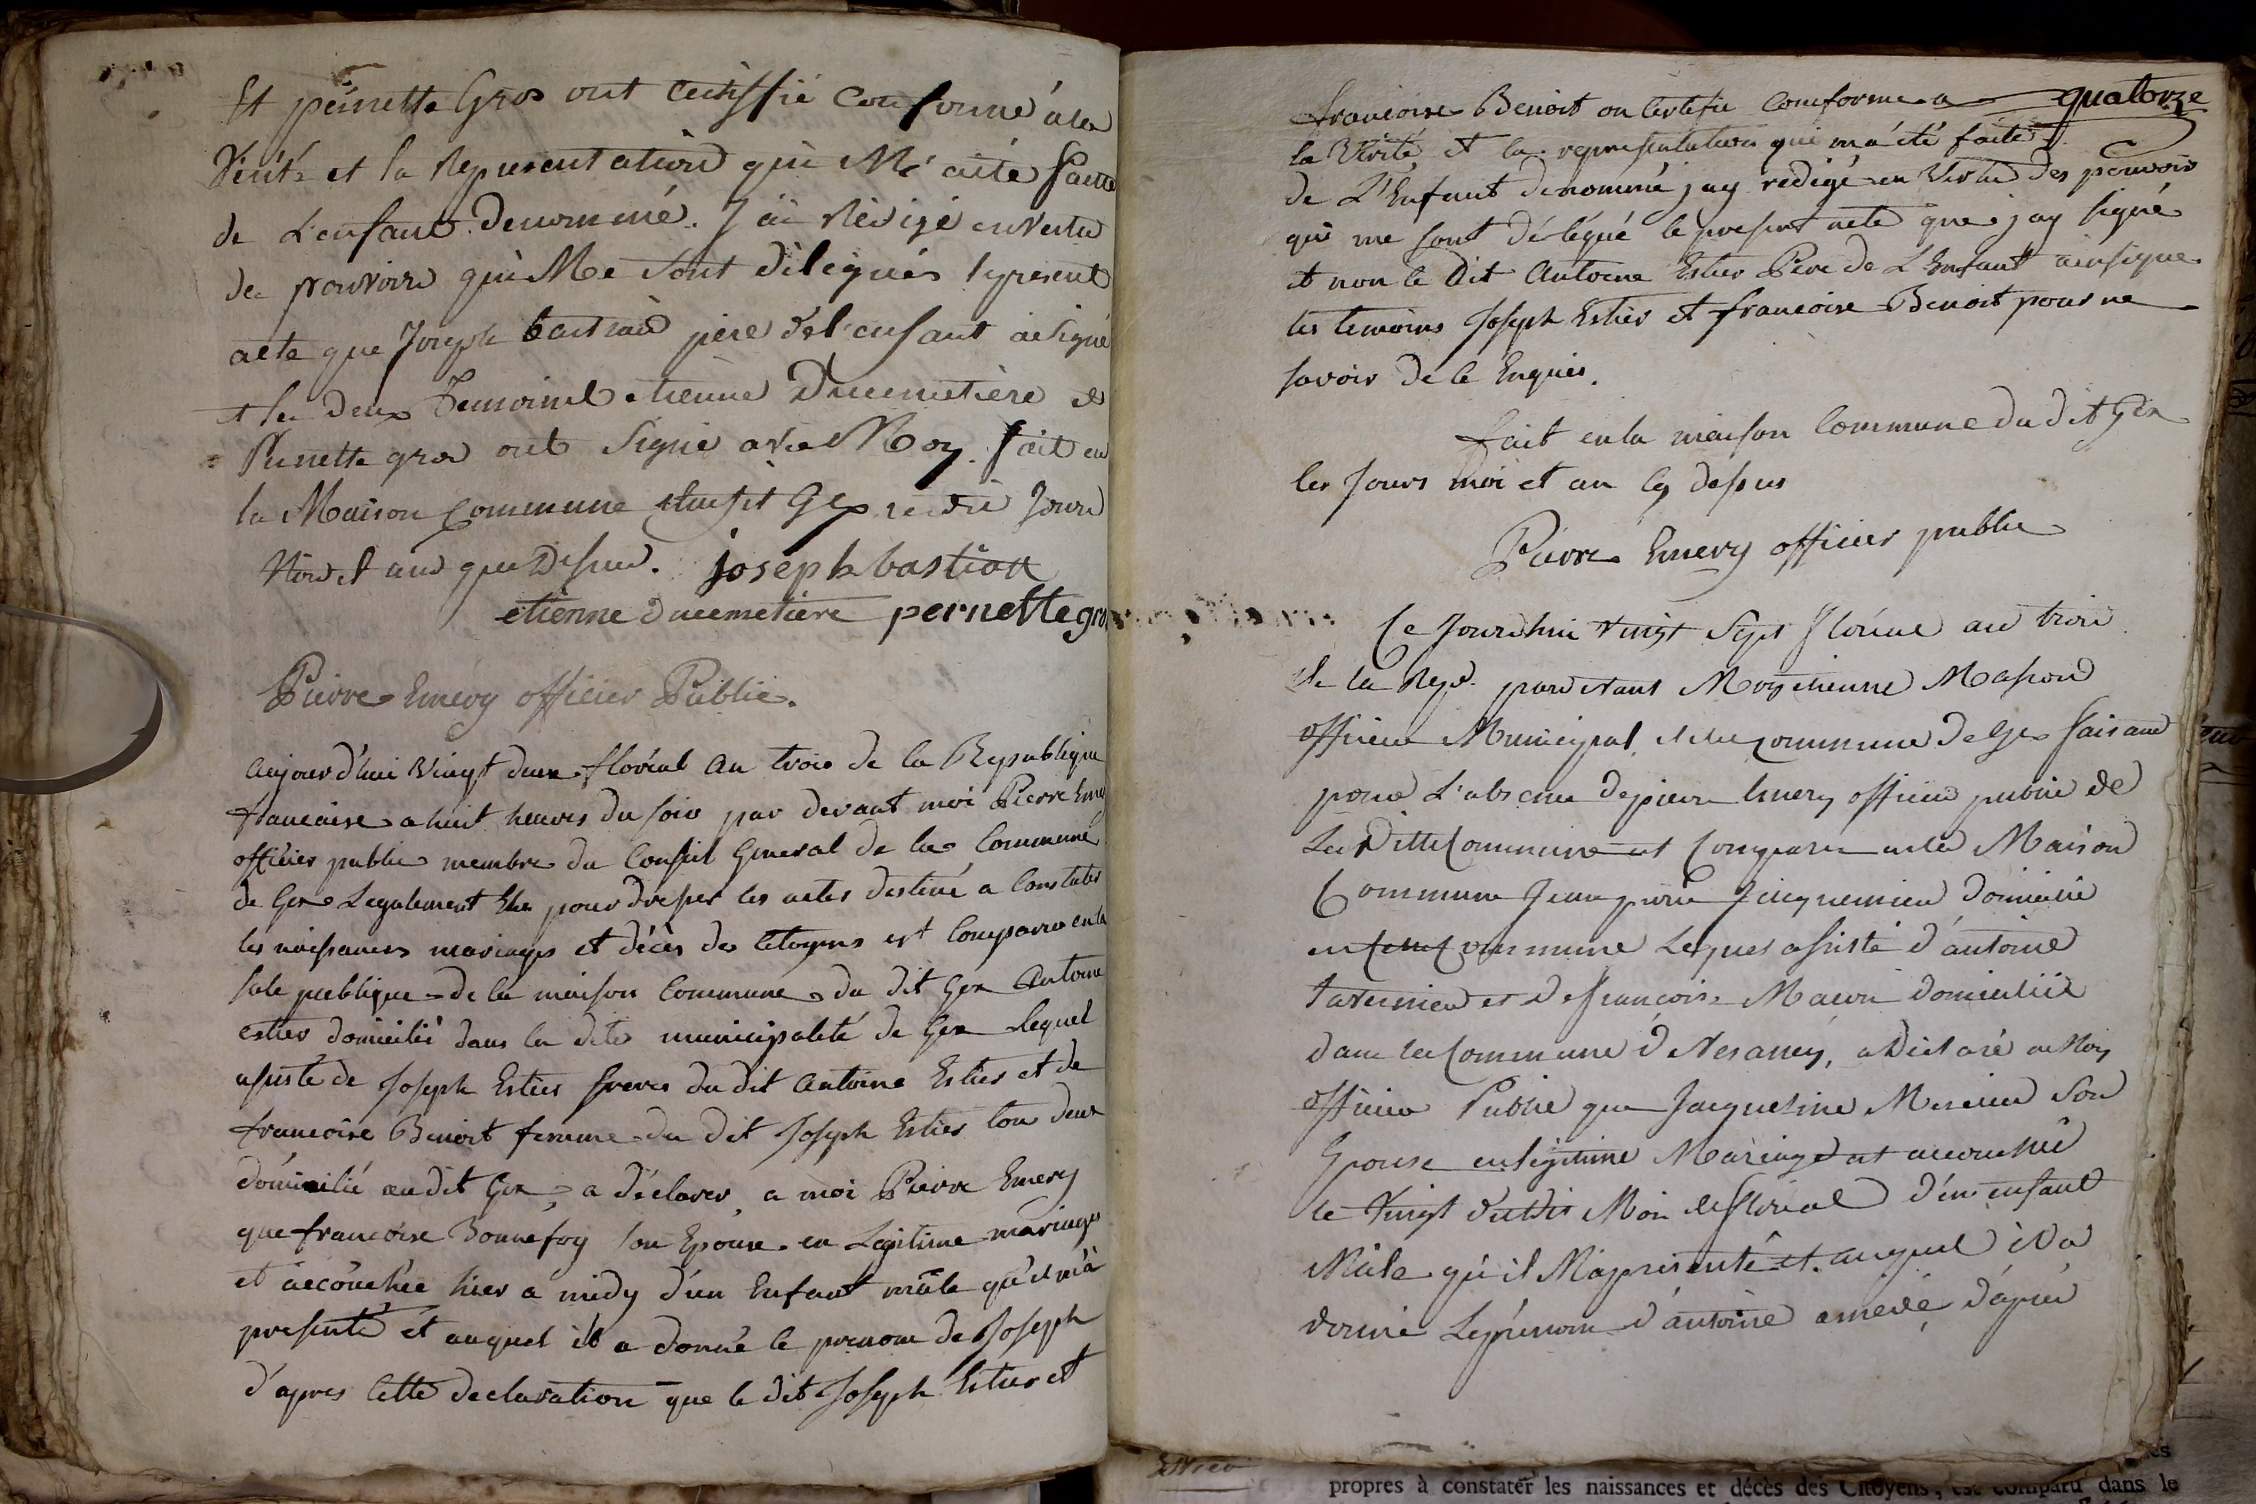 Et pernette Gros ont Certiffié Conforme a la
Vérité et la Representation qui M'a été faitte
de L'enfant denommé. J'ai Rédigé en Vertu
des pouvoirs qui Me sont délégués le present
acte que Joseph bastian père del'enfant a signé
et les deux Temoins etienne Ducemetière et
Pernette gros ont signé avec Moy. fait en
la Maison Commune dudit Gex les dit Jours
Mois et and que Desus. joseph bastian
etienne ducemetiere pernette gros
Pierre Emery officier Public.
Aujourd'hui vingt deux floréal an trois de la Republique
francaise a huit heures du soir par devant moi Pierre Emery
officier public membre du Conseil General de la Commune
de Gex Legalement Elu pour dresser les actes destiné a Constater
les naissances mariages et décès des Citoyens est Comparu en la
sale publique de la maison Commune du dit Gex Antoine
estier domicilié dans la dite municipalité de Gex lequel
assisté de Joseph Estier freres du dit Antoine Estier et de
francoise Benoit femme du dit Joseph Estier tou deux
domicilié audit Gex a déclarer a moi Pierre Emery
que francoise Bonnefoy son Epouse en Legitime mariage
et accouchée hier a midy d'un Enfant mâle qu'il m'à
presenté et auquel il a donné le prenom de Joseph
d'apres Cette declaration que le dit Joseph Estier et
quatorze
francoise Benoit on Certifie Conforme a
la Vérité et la representation qui m'a été faite
de L'Enfant denommé jay redigé en Vertu des pouvoir
qui me sont délégué le present acte que jay signé
et non le dit Antoine Estier Pere de L'Enfant ainsi que
les temoins Joseph Estier et francoise Benoit pour ne
savoir de Ce Enquis.
fait en la maison Commune du dit Gex
les Jours moi et an Cy dessus
Pierre Emery officier public
Ce Jourdhui vingt Sept floréal and trois
de la Rep. pardevant Moy etienne Masson
officier Municipal de la commune de Gex faisant
pour L'absence de pierre Emery officier public de
La ditte Commune est Comparu en la Maison
Commune Jean pierre Jacquemier domicilié
en Cette Commune Lequel assisté d'antoine
tavernier et de françois Maurie domiciliié
dans la Commune de Vesancy, a Déclaré a Moy
officier Public que Jacqueline Mercier Son
Epouse en légitime Mariage est accouchée
le Vingt dudit Mois de floréal d'un enfant
Mâle qu'il M'a presenté et auquel il a
donné Le prénom d'antoine amedé, d'après
propres à constater les naissances et décès des Citoyens, est comparu dans le